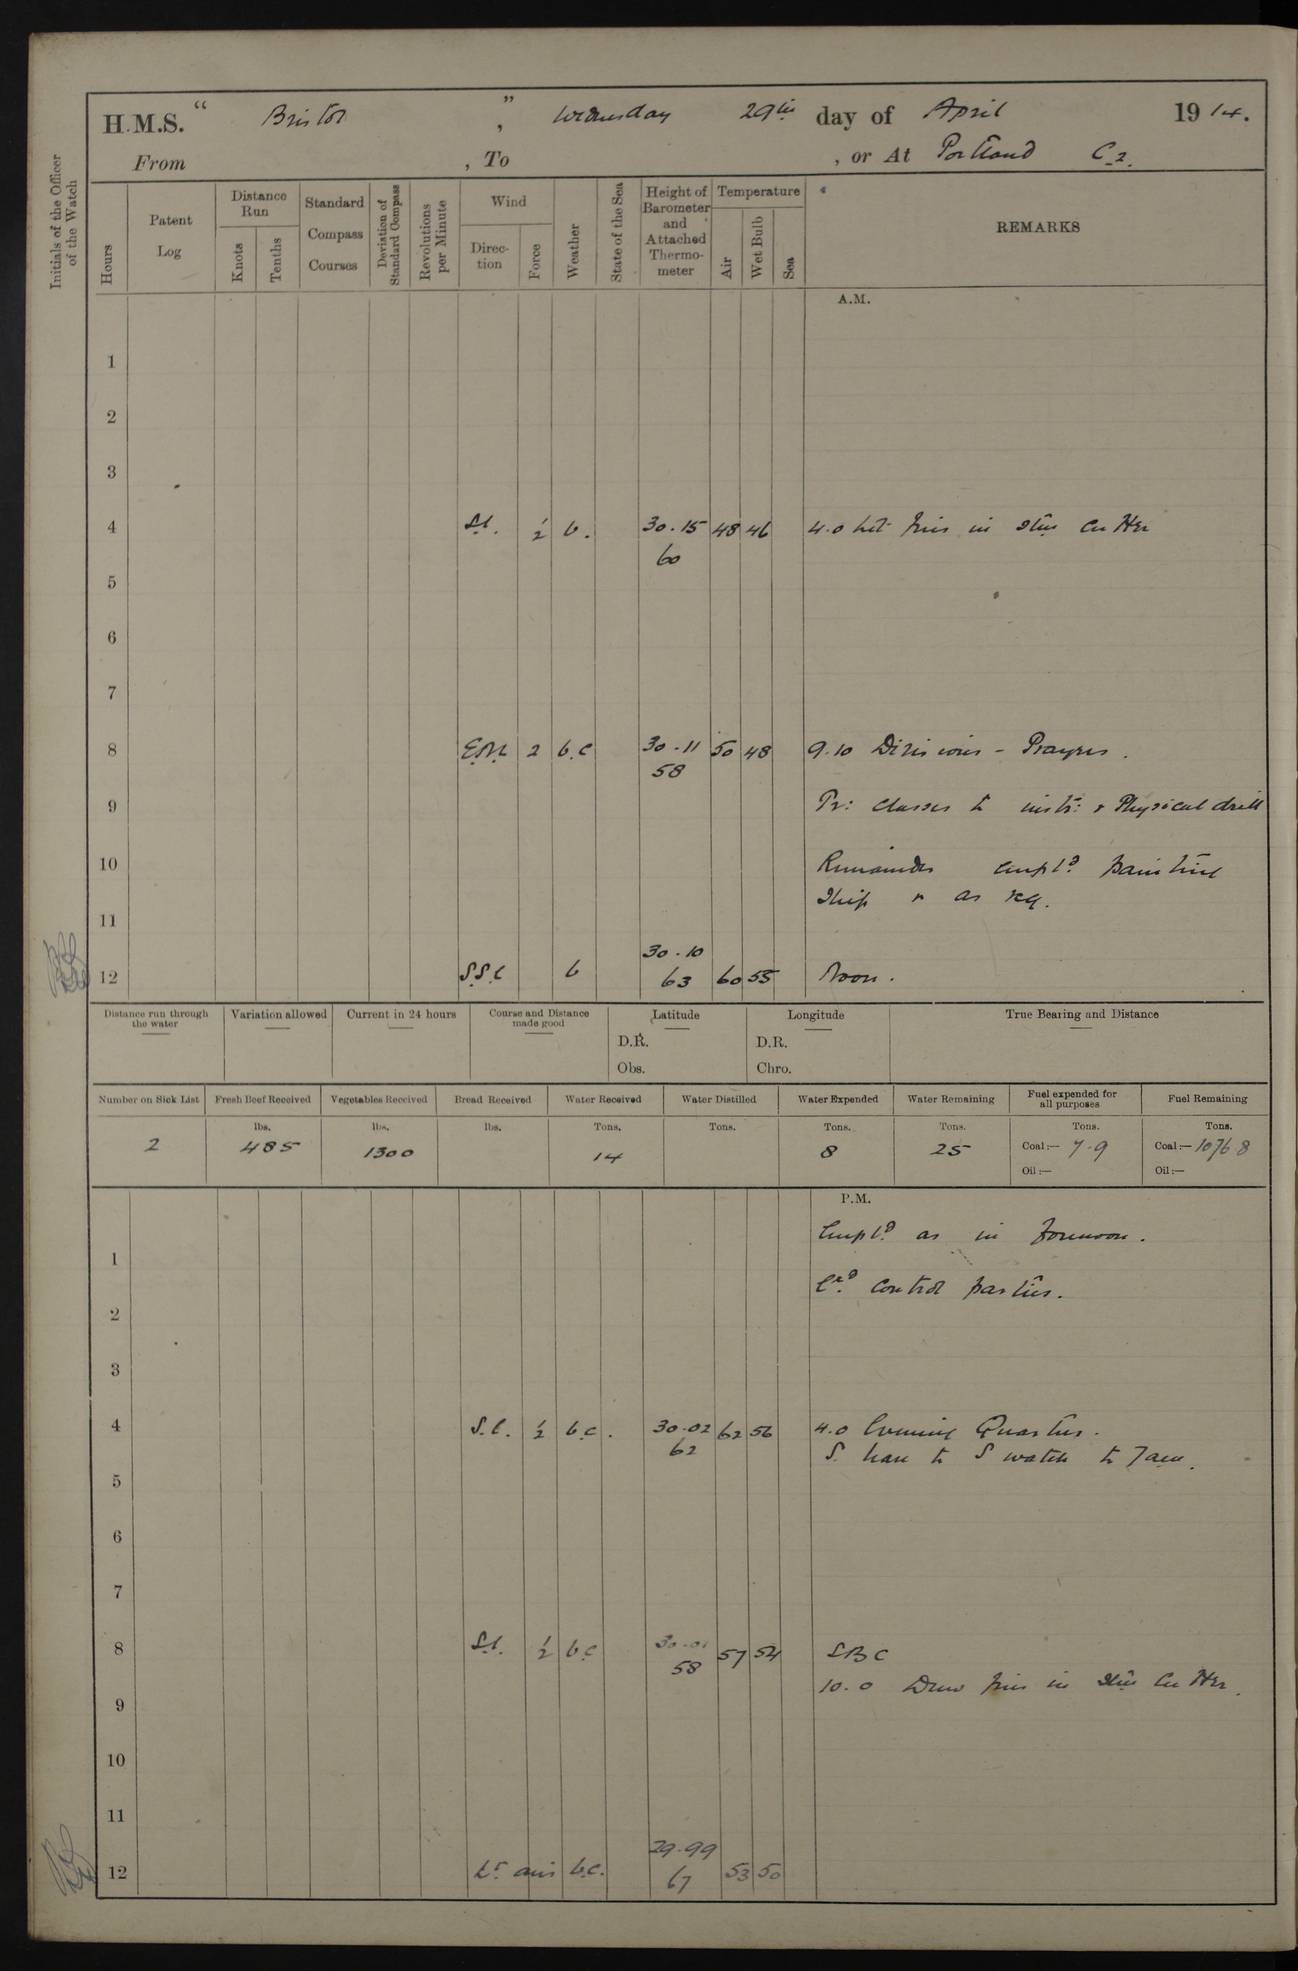 H.M.S. “ Bristol ”, Wednesday 29th day of April 1914.
From , To , or At Portland C.2.
Initials of the Officer of the Watch
Hours
Patent Log
Distance Run
Knots
Tenths
Standard Compass Courses
Deviation of Standard Compass
Revolutions per Minute
Wind
Direction
Force
Weather
State of the Sea
Height of Barometer and Attached Thermometer
Temperature
Air
Wet Bulb
Sea
REMARKS
A.M.
1
2
3
4 S.E. ½ b. 30.15 48 46 4.0 Lit fires in Stm Cutter
60
5
6
7
8 2 b.c 30.11 50 48 9.10 Divisions - Prayers.
58
9 Tr: Classes to instr: & Physical drill
10 Remainder empld. painting
Ship & as req.
11
30.10
12 S.S.E b 63 60 55 Noon.
Distance run through the water
Variation allowed
Current in 24 hours
Course and Distance made good
Latitude
D.R.
Obs.
Longitude
D.R.
Chro.
True Bearing and Distance
Number on Sick List Fresh Beef Received Vegetables Received Bread Received Water Received Water Distilled Water Expended Water Remaining Fuel expended for all purposes Fuel Remaining
lbs. lbs. lbs. Tons. Tons. Tons. Tons. Tons. Tons.
2 485 1300 14 8 25 Coal:— 7.9 Coal:— 1076.8
Oil:— Oil:—
P.M.
Empld. as in forenoon.
1
Exd. Control parties.
2
3
4 S.E. ½ b.c. 30.02 62 56 4.0 Evening Quarters.
62 S. leave to S watch to 7am.
5
6
7
8 S.E. ½ b.c 30.01 57 54 SBC
58 10.0 Drew fires in Stm Cutter.
9
10
11
29.99
12 Lt airs b.c. 67 53 50